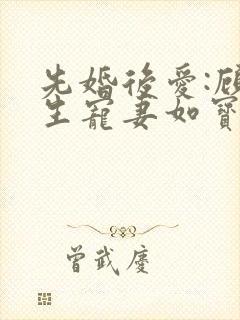 先婚後愛:顧
生寵妻如寶
曾武慶